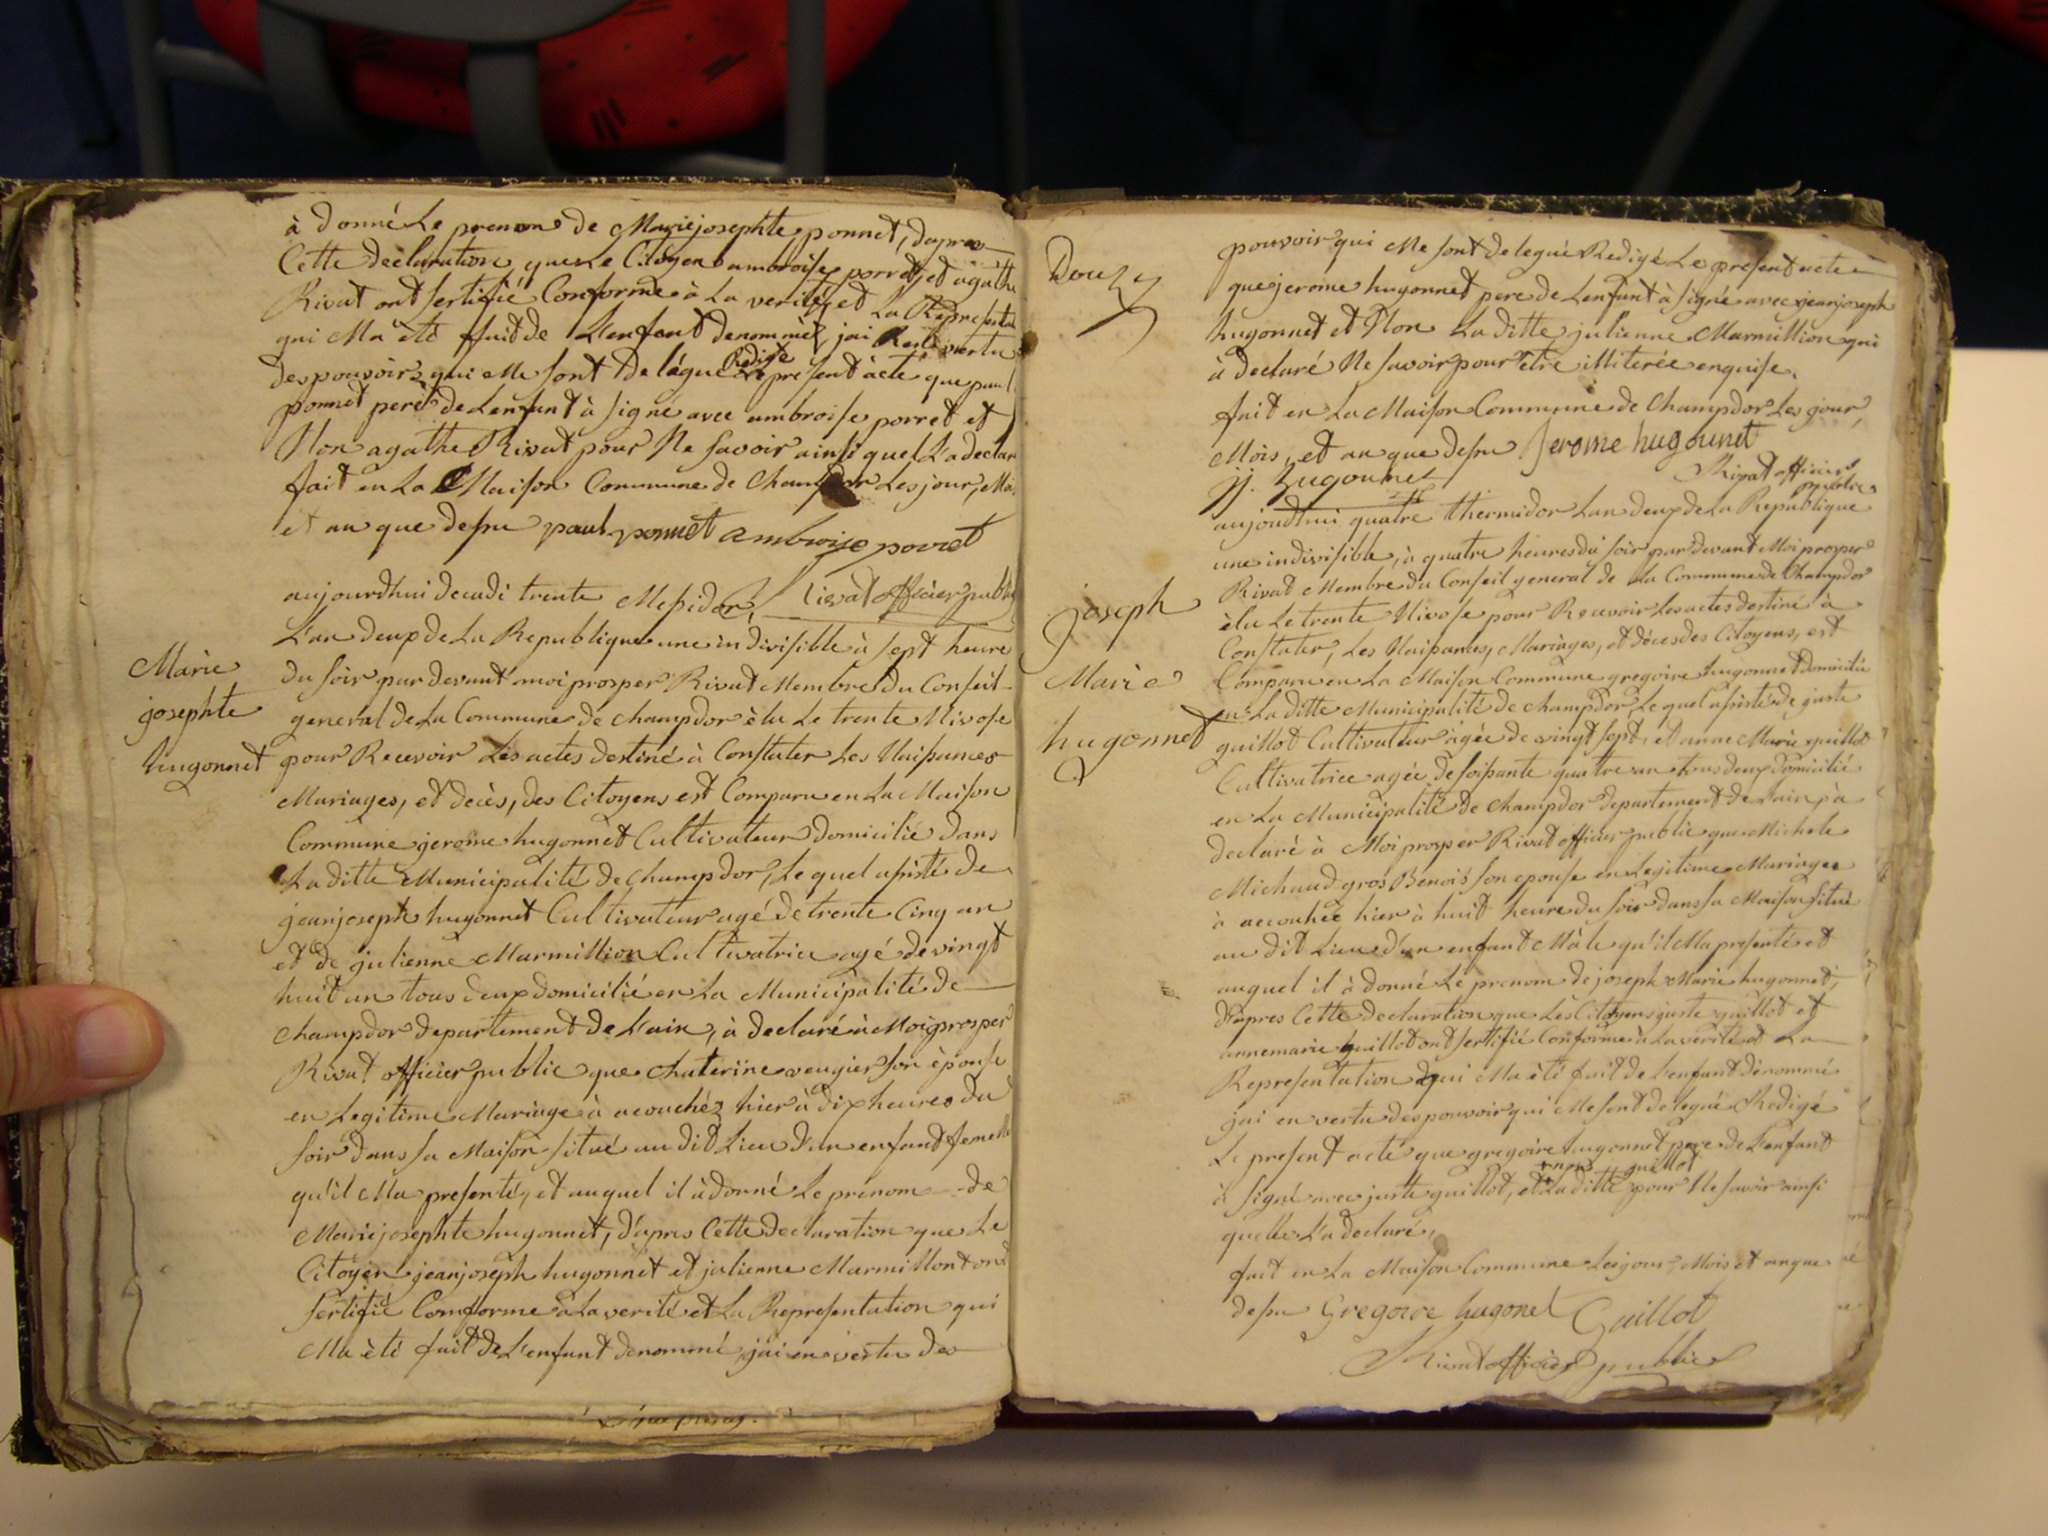 à donné Le prenom de Marie josephte ponnet, dapres
Cette declaration que Le Citoyen ambroise porret et agathe
Rivat ont sertifié Conforme à La verité et La Represent
qui Ma été fait de L'enfant denommé jai en vertu
des pouvoir qui Me sont delégué Redigé Le present acte que paul
ponnet pere de Lenfant à signé avec ambroise porret et
Non agathe Rivat pour Ne savoir ainsi quel L'a declar
fait en La Maison Commune de Champdor Les jour, Mo
et an que desu paul ponnet ambroise porret
Rivat officier public
aujourdhui decadi trente Messidor
L'an deux de La Republique une indivisible à sept heure
du soir par devant moi prosper Rivat Membre du Conseil
general de La Commune de champdor èlu Le trente Nivose
pour Recevoir Les actes destiné à Constater Les Naissances
Mariages, et decès, des Citoyens est Comparu en La Maison
Commune jerome hugonnet Cultivateur domicilié dans
La ditte Municipalité de Champdor, Le quel assisté de
jeanjoseph hugonnet Cultivateur agé de trente Cinq an
et de julienne Marmillion Cultivatrice agé de vingt
huit an tous deux domicilié en La Municipalité de
champdor departement de L'ain, à declaré à Moi prosper
Rivat officier public que Chaterine vengier son èpouse
en Legitime Mariage à acouchéz hier à dix heures du
soir dans sa Maison situé au dit Lieu d'un enfant femelle
qu'il Ma presenté, et auquel il à donné Le prenom de
Marie josephte hugonnet, d'apres Cette declaration que Le
Citoyen jeanjoseph hugonnet et julienne Marmillon ont
sertifié Comforme à La verité et La Representation qui
Ma èté fait de L'enfant denommé jai en vertu des
Marie
josephte
hugonnet
Douzy
pouvoir qui Me sont delegué Redigé Le present acte
que jerome hugonnet pere de Lenfant à signé avec jeanjoseph
hugonnet et Non La ditte julienne Marmillion qui
à declaré Ne savoir pour être illiterée enquise.
fait en La Maison Commune de Champdor Les jour,
Mois, et an que desu Jerome hugonnet
jj. hugonnet Rivat officier public
aujoudhui quatre thermidor Lan deux de La Republique
une indivisible, à quatre heures du soir par devant Moi prosper
Rivat Membre du Conseil general de La Commune de Champdor
èlu Le trente Nivose pour Recevoir Les actes destiné à
Constater, Les Naissances, Mariages, et dèces des Citoyens, est
Comparu en La Maison Commune gregoire hugonnet domicilié
en La ditte Municipalité de champdor, Le quel assisté de juste
guillot Cultivateur agée de vingt sept, et anne Marie guillot
Cultivatrice agée de soissante quattre an tous deux domicilié
en La Municipalité de Champdor departement de Lain, à
declaré à Moi prosper Rivat officier public que Michele
Michaud gros Benois son epouse en Legitime Mariage
à acouchée hier à huit heure du soir dans sa Maison situé
au dit Lieu d'un enfant Màle qu'il Ma presenté et
auquel il à donné Le prenom de joseph Marie hugonnet,
d'apres Cette declaration que Les Citoyens juste guillot et
annemarie guillot ont sertifié Conforme à La verité et La
Representation qui Ma èté fait de L'enfant dénommé
jai en vertu des pouvoir qui Me sont delegué Redigé
Le present acte que gregoire hugonnet pere de L'enfant
à signé avec juste guillot, et La ditte guillot pour Ne savoir ainsi
quelle L'a declaré,
fait en La Maison Commune Les jour, Mois et an que
desu Gregoire hugonet Guillot
Rivat officier public
joseph
Marie
hugonnet